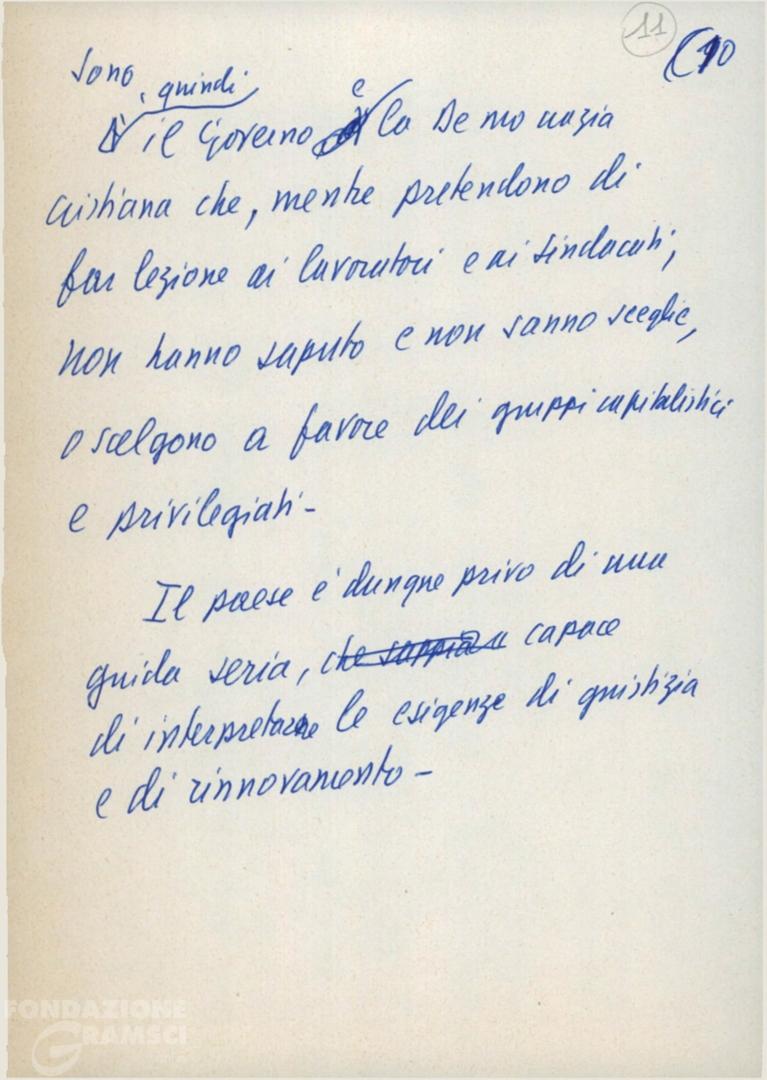 11
(10
sono, quindi
è il Governo e la Democrazia
Cristiana che, mentre pretendono di
far lezione ai lavoratori e ai sindacati,
non hanno saputo e non sanno scegliere,
o scelgono a favore dei gruppi capitalistici
e privilegiati -
Il paese è dunque privo di una
guida seria, che sappia capace
di interpretare le esigenze di giustizia
e di rinnovamento -
FONDAZIONE
GRAMSCI